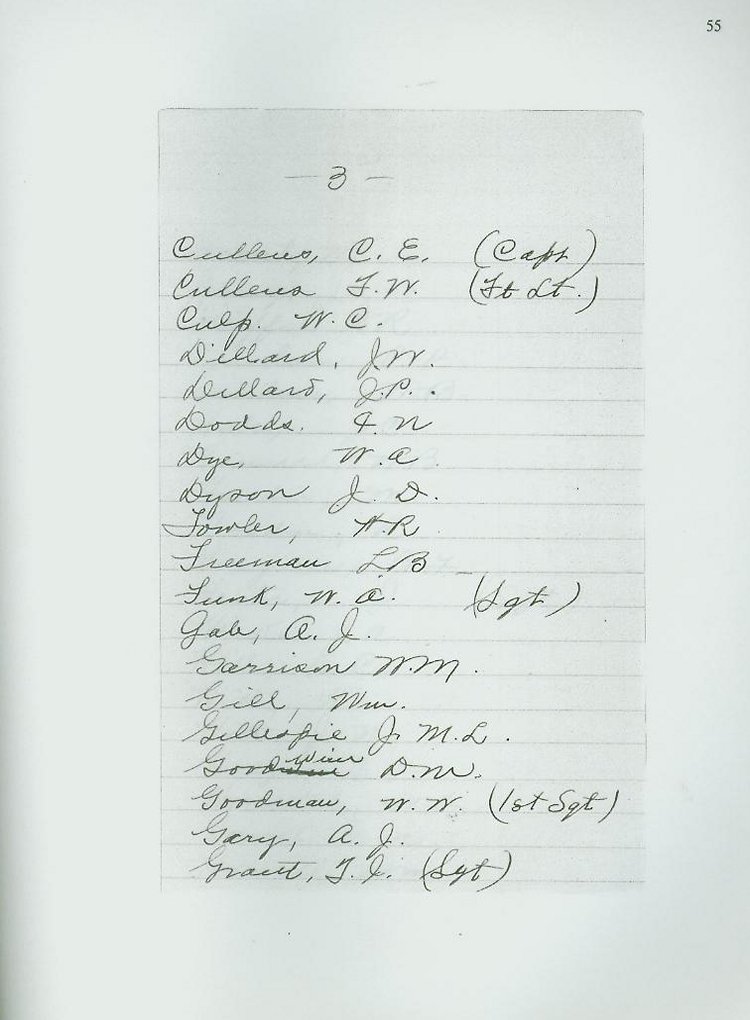 55
— 3 —
Cullens, C. E. (Capt)
Cullens F. W. (1st Lt.)
Culp. W. C.
Dillard, J. W.
Dillard, J. P.
Dodds. F. N
Dye, W. A
Dyson J. D.
Fowler, H. R
Freeman L B
Funk, W. A. (Sgt)
Gale, A. J.
Garrison W. M.
Gill, Wm.
Gillespie J. M. L.
Goodwin D. M.
Goodman, W. W. (1st Sgt)
Gary, A. J.
Grant, T. J. (Sgt)